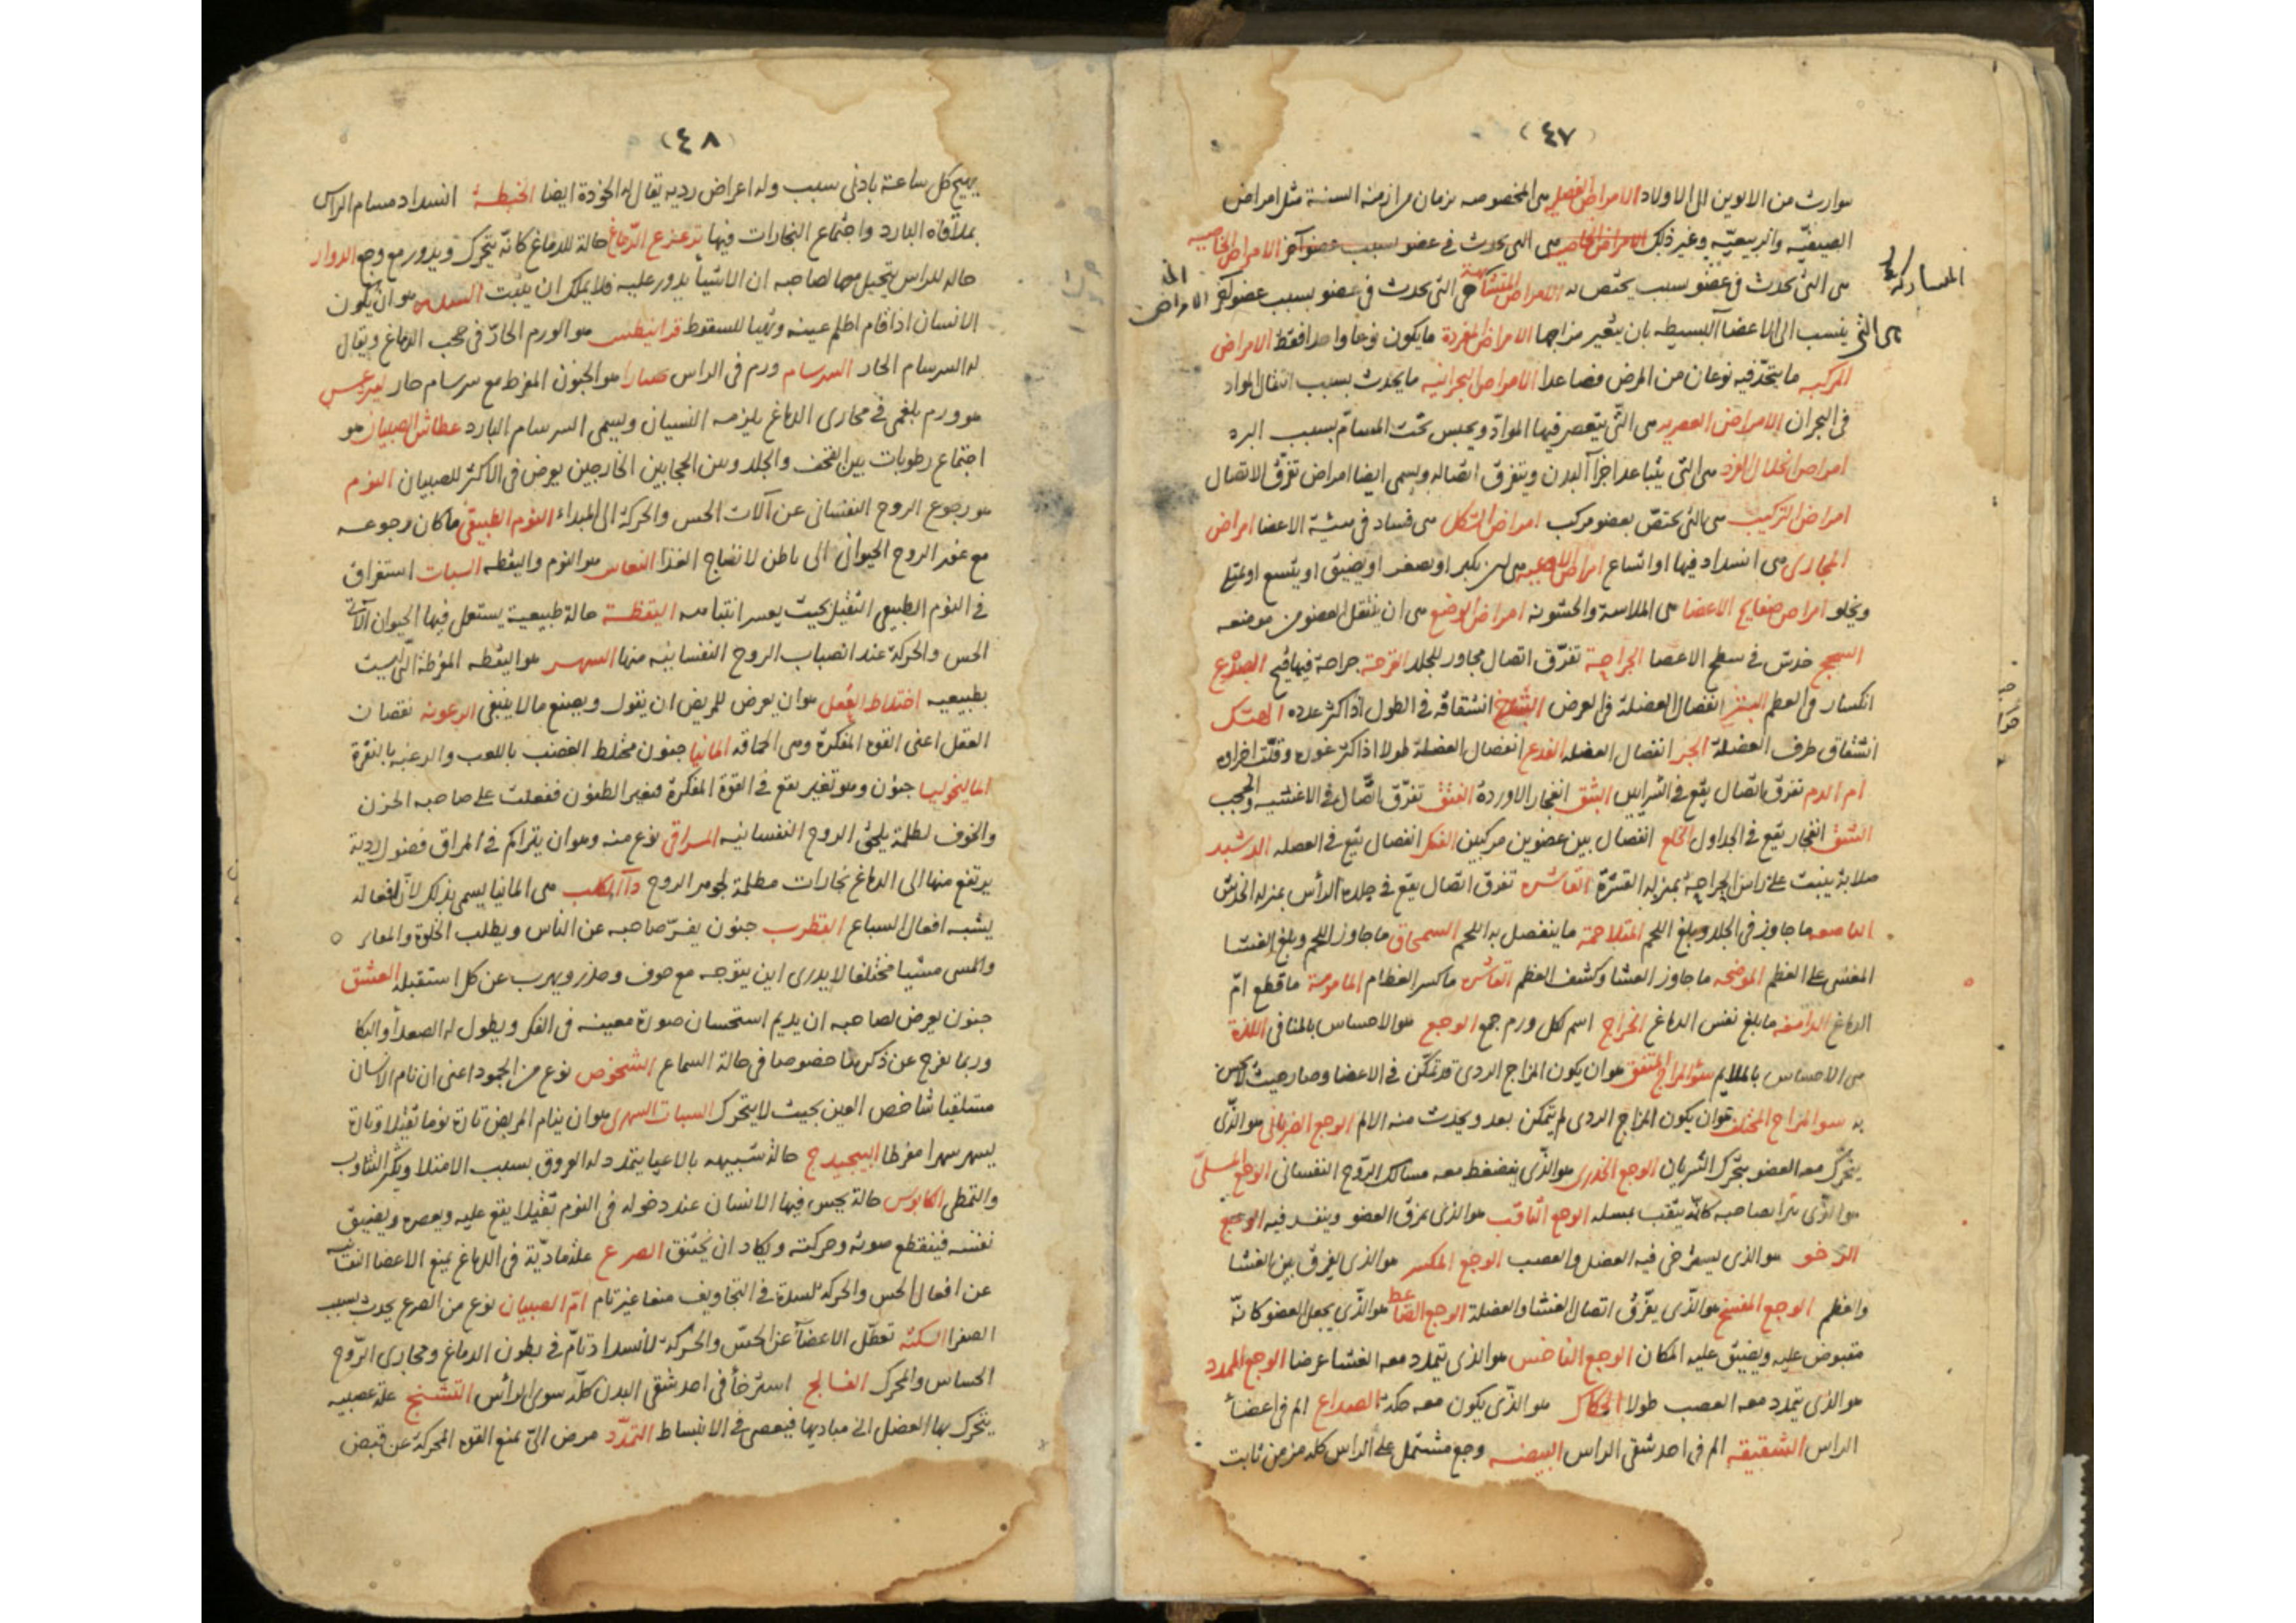 (٤٧)
يتوارث من الابوين الى الاولاد الامراض الفصلية هى المخصوصه بزمان من ازمنة السنة مثل امراض
الصيفيّه والربيعيّه وغير ذلك هى التى تحدث فى عضو بسبب عضو آخر الامراض الخاصيه
المشاركة
هى التى تحدث فى عضو بسبب يختص به الامراض هى التى تحدث فى عضو بسبب عضو الامراض
هى التى ينسب الى الاعضاء البسيطه بان يتغير مزاجها الامراض المفردة مايكون نوعا واحدا فقط الامراض
المركبه ما يتّحد فيه نوعان من المرض فصاعدا الامراض البحرانيه مايحدث بسبب انتقال المواد
فى البحران الامراض هى التّى فيها الموادّ ويحبس تحت المسامّ بسبب البرد
امراض انحلال الفرد هى التى يتباعد اجزآ البدن ويتفرق اتّصاله ويسمى ايضا امراض تفرّق الاتصال
امراض التركيب هى التى تختصّ بعضو مركب امراض الشكل هى فساد فى هيئة الاعضا امراض
المجارى هى انسداد فيها او اتساع امراض الاوعيه هى ان يكبر او يصغر او يضيق او يتسع او يمتلئ
ويخلو امراض صفايح الاعضا هى الملاسة والخشونه امراض الوضع هى ان ينتقل العضو من موضعه
السحج خدش فى سطح الاعضا الجراحة تفرّق اتصال مجاور للجلد القرحة جراحة فيها قيح الصدع
انكسار فى العظم البتر انفصال العضلة فى العرض انشقاقه فى الطول اذا كثر عدده الهتك
انشقاق طرف العضلة انفصال العضله الفدع انفصال العضلة طولا اذا كثر غوره وقلت اجزاه
ام الدم تفرق اتصال يقع فى الشرايين البثق انفجار الاوردة الفتق تفرّق اتّصال فى الاغشيه والحجب
الشق انفجار يقع فى الجداول الخلع انفصال بين عضوين مركبين الفك انفصال يقع فى العضله الدشبد
صلابة ينبت على راس الجراحة بمنزلة القشرة القاشره تفرق اتصال يقع فى جلدة الرأس بمنزله الخدش
الباضعه ما جاوز فى الجلد وبلغ اللحم المتلاحمة ما ينفصل به اللحم السمحاق ما جاوز اللحم وبلغ الغشا
المغشى على العظم الموضحه ما جاوز الغشا وكشف العظم ما كسر العظام المامومة ما قطع امّ
الدماغ الدامغه ما بلغ نفس الدماغ الخراج اسم لكل ورم جمع الوجع هو الاحساس بالمنافى اللذة
هى الاحساس بالملايم سؤ المزاج المتفق هو ان يكون المزاج الردى قد تمكّن فى الاعضا وصار حيث لا يحس
به سو المزاج المختلف هو ان يكون المزاج الردى لم يتمكن بعد ويحدث منه الالم الوجع الضربانى هو الذّى
يتحرّك معه العضو بتحرّك الشريان الوجع الخدرى هو الذّى ينضغط معه مسالك الرّوح النفسانى الوجع المسلّى
هو الذّى يترا لصاحبه كانّه يثقب بمسله الوجع الثاقب هو الذى يمزق العضو وينفد فيه الوجع
الرخو هو الذى يسترخى فيه العضل والعصب الوجع المكسر هو الذى يفرق بين الغشا
والعظم الوجع المفسخ هو الذّى يفرّق اتصال الغشا والعضلة الوجع الضاغط هو الذّى يجعل العضو كانّه
مقبوض عليه ويضيق عليه المكان الوجع الناخس هو الذى يتمدد معه الغشا عرضا الوجع الممدد
هو الذى يتمدد معه العصب طولا الحكاك هو الذّى يكون معه حكة الصداع الم فى اعضاء
الراس الشقيقه الم فى احد شقى الراس البيضه وجع مشتمل على الراس كله مزمن ثابت
(٤٨)
يهيج كل ساعة بادنى سبب وله اعراض رديه يقال له الخوذة ايضا الخبطة انسداد مسام الراس
بملاقاة البارد واجتماع البخارات فيها تزعزع الدّماغ حالة للدماغ كانّه يتحرك ويدور مع وجع الدوار
حاله للراس يتخيل معها لصاحبه ان الاشيأ يدور عليه فلا يملك ان يثبت السدر هو ان يكون
الانسان اذا قام اظلم عينه وتهيا للسقوط قرانيطس هو الورم الحادّ فى حجب الدماغ ويقال
له السرسام الحار السرسام ورم فى الراس صبارا هو الجنون المفرط مع سرسام حار ليثرغس
هو ورم بلغمى فى مجارى الدماغ يلزمه النسيان ويسمى السرسام البارد عطاش الصبيان هو
اجتماع رطوبات بين القحف والجلد وبين الحجابين الخارجين يعرض فى الاكثر للصبيان النوم
هو رجوع الروح النفسانى عن آلات الحس والحركة الى المبداء النوم الطبيعى ما كان رجوعه
مع غور الروح الحيوانى الى باطن لانضاج الغذا النعاس هو النوم واليقظه السبات استغراق
فى النوم الطبيعى الثقيل بحيث يعسر انتباهه اليقظة حالة طبيعية يستعمل فيها الحيوان آلات
الحس والحركة عند انصباب الروح النفسانيه منها السهر هو اليقظه المفرطة التى ليست
بطبيعيه اختلاط العقل هو ان يعرض للمريض ان يقول ويصنع مالا ينبغى الرعونه نقصان
العقل اعنى القوه المفكرة وهى الحماقه المانيا جنون مختلط الغضب باللعب والرغبه بالنفرة
الماليخوليا جنون وهو تغير يقع فى القوة المفكرة فيغير الظنون فغلبت على صاحبه الحزن
والخوف لظلمة يلحق الروح النفسانيه المراقى نوع منه وهو ان يتراكم فى المراق فضول ردية
يرتفع منها الى الدماغ بخارات مظلمة لجوهر الروح دآء الكلب هى المانيا يسمى بذلك لانّ افعاله
يشبه افعال السباع القطرب جنون يفرّ صاحبه عن الناس ويطلب الخلوة والمقابر
والمشى مشيا مختلفا لا يدرى اين يتوجه مع خوف وحذر ويهرب عن كل استقبله العشق
جنون يعرض لصاحبه ان يديم استحسان صورة معينه فى الفكر ويطول له الصعداء والبكا
وربما يفرح عن ذكرها خصوصا فى حالة السماع الشخوص نوع من الجمود اعنى ان نام الانسان
مستلقيا شاخص العين بحيث لا يتحرك السبات السهرى هو ان ينام المريض تارة نوما ثقيلا وتارة
يسهر سهرا مفرطا حالة شبيهه بالاعيا يتمدد له العروق بسبب الامتلا ويكثر التثاوب
والتمطى الكابوس حالة يحس فيها الانسان عند دخوله فى النوم ثقيلا يقع عليه ويعصره ويضيق
نفسه فينقطع صوته وحركته ويكاد ان يختنق الصرع علة ماديّة فى الدماغ يمنع الاعضا النفسانيه
عن افعال الحس والحركة لسدة فى التجاويف منعا غير تام امّ الصبيان نوع من الصرع يحدث بسبب
الصفرا السكته تعطّل الاعضآ عن الحسّ والحركة لانسداد تامّ فى بطون الدماغ ومجارى الرّوح
الحساس والمحرك الفالج استرخأ فى احد شقى البدن كلّه سوى الرأس التشنج علة عصبيه
يتحرك بها العضل الى مباديها فيعصى فى الانبساط التمدّد مرض آلىّ يمنع القوه المحركة عن قبض